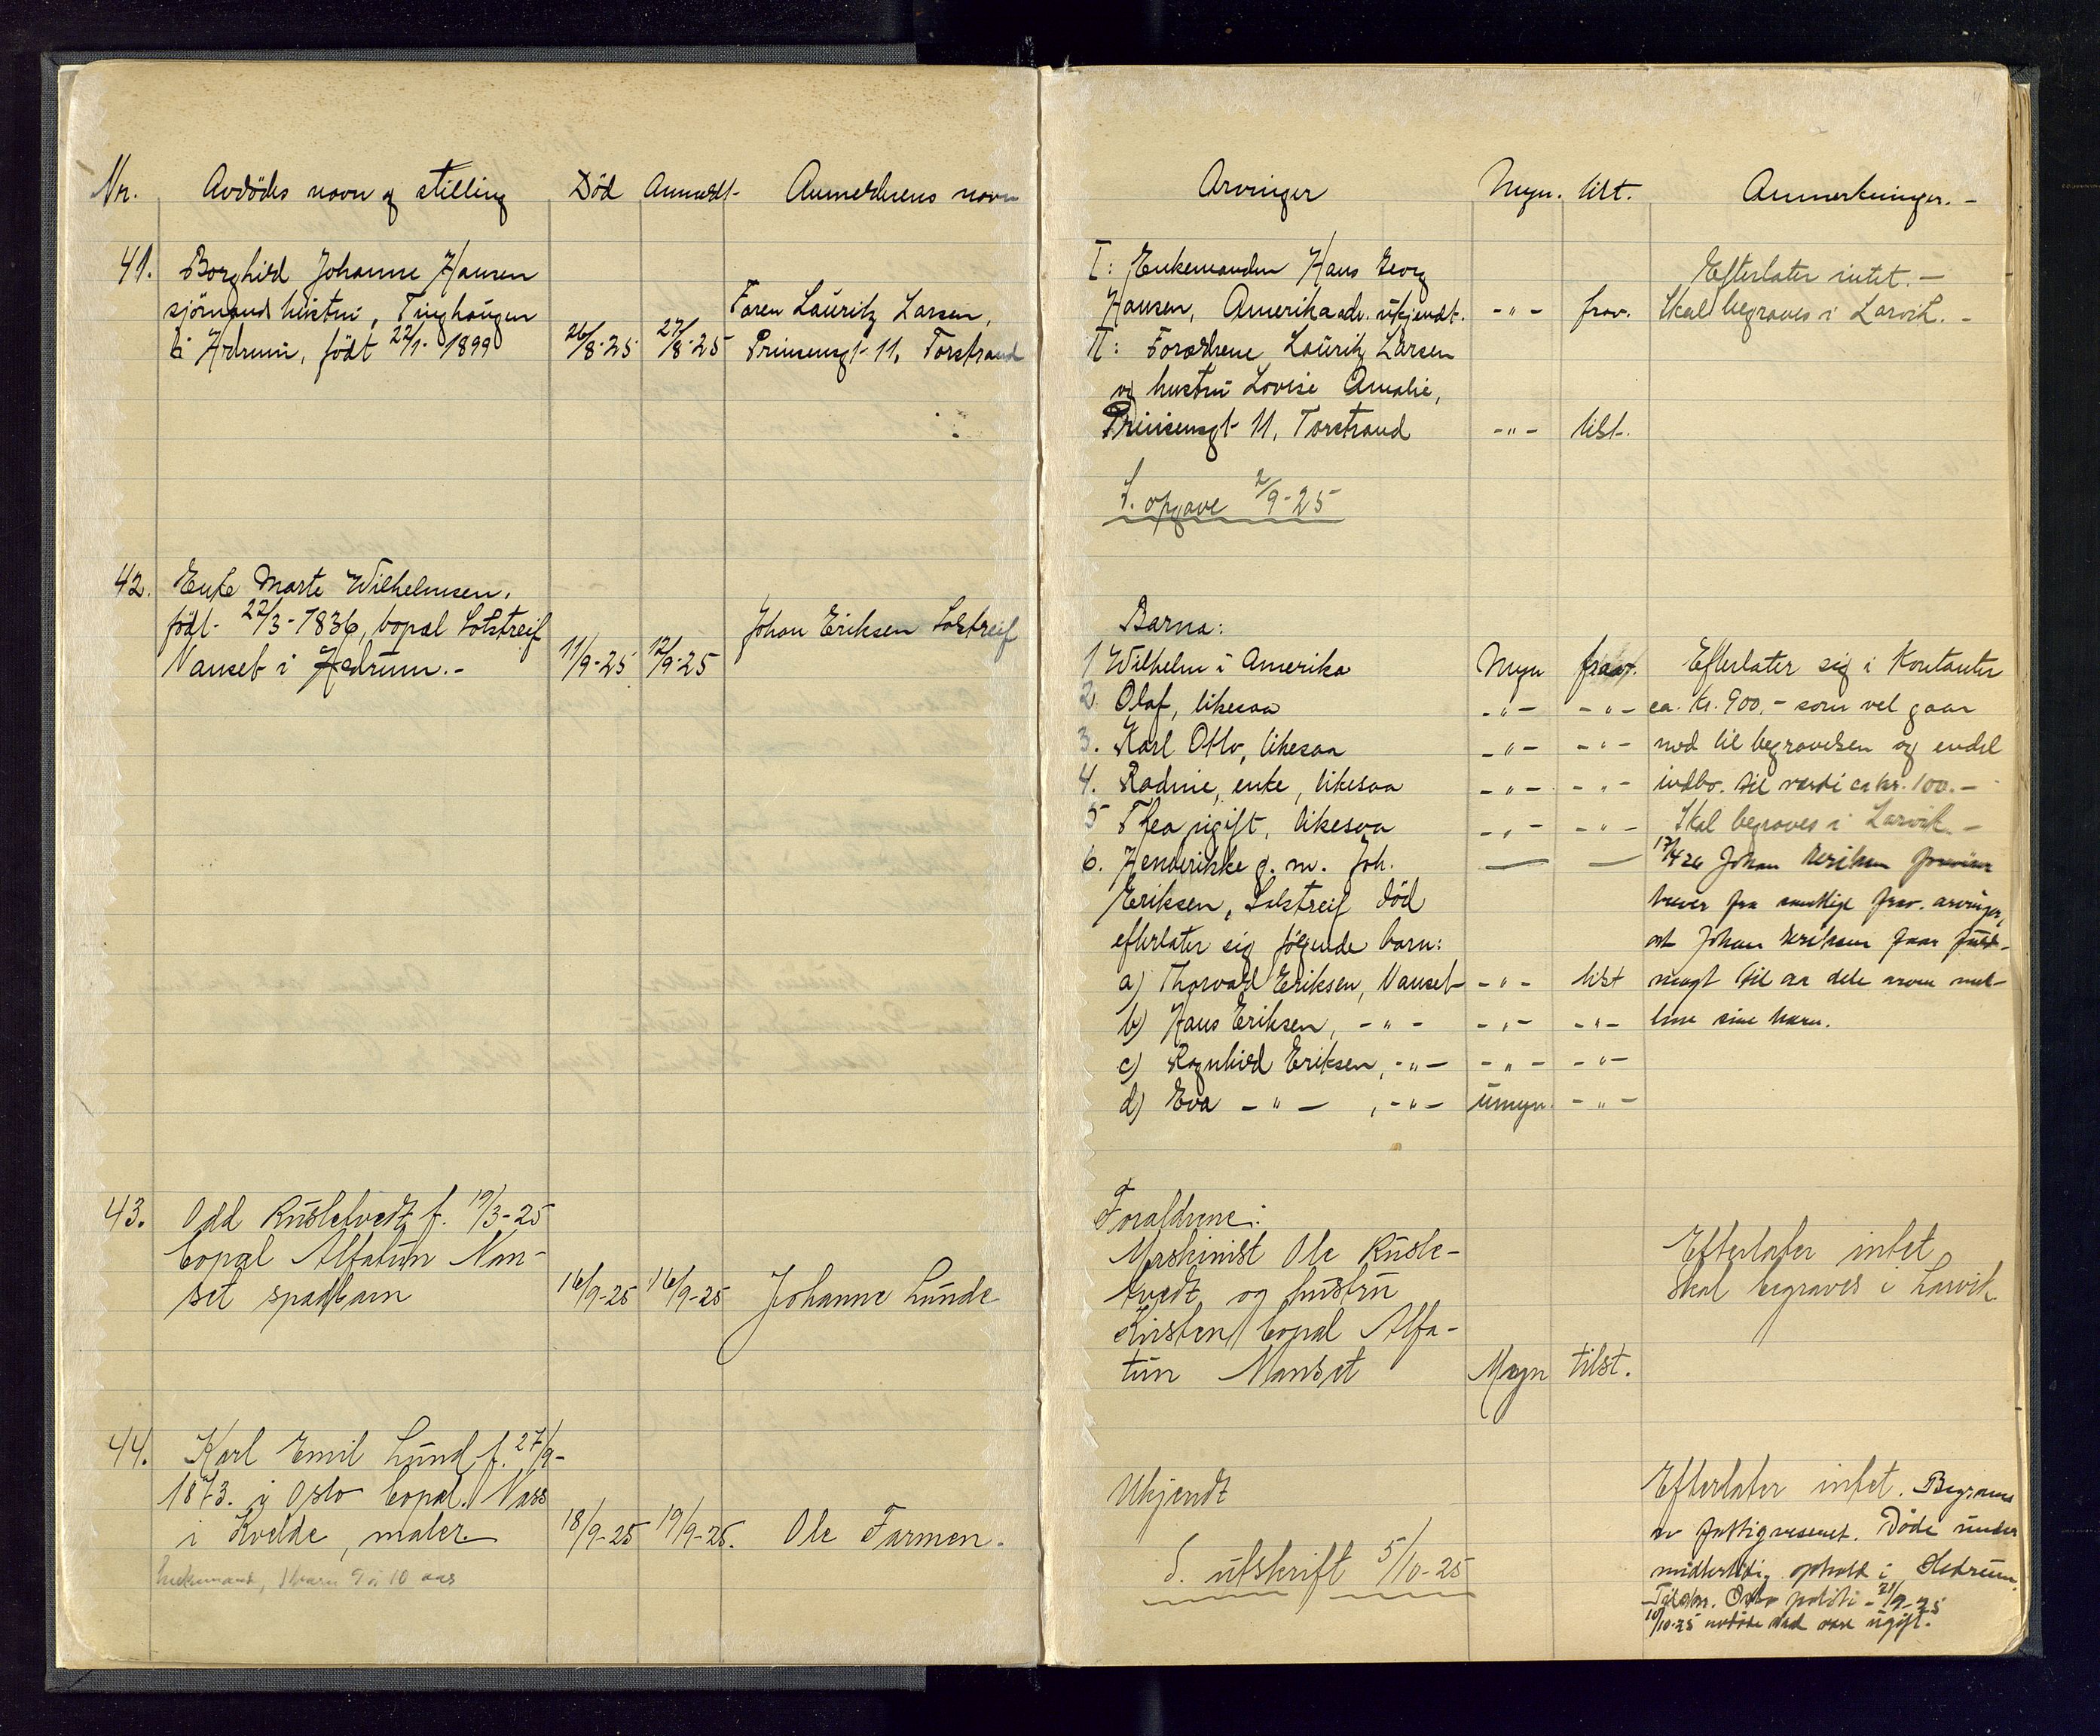 Nr. Avdödes navn og stilling Död Anmeldt Anmelderens navn
41. Borghild Johanne Hansen
sjömands hustru, Tinghaugen
i Hedrum, född 22/1 1899 26/8-25 27/8-25
Faren Lauritz Larsen,
Prinsensgt 11, Torstrand
42. Enke Marte Wilhelmsen.
född 22/3-1836, bopæl Lolstreif
Nanset i Hedrum.- 11/9-25 12/9-25
Johan Eriksen Lolstreif
43. Odd Rusletvedt f. 19/3-25
bopæl Alfatun Nan-
set spædbarn 16/9-25 16/9-25 Johanne Lunde
44. Karl Emil Lund f. 27/9-
1873. i Oslo bopæl. Nass
i Kvelde, maler. 18/9-25 19/9-25. Ole Farmen.
Enkemand, 1 barn 9 à 10 aar
Arvinger Myn. tilst. Anmerkninger.-
I: Enkemanden Hans Georg Efterlater intet.-
Hansen, Amerika adr. ukjendt. -"- frav. Skal begraves i Larvik.-
II: Forældrene Lauritz Larsen
og hustru Lovise Amalie,
Prinsensgt 11, Torstrand -"- tilst.
S. opgave 2/9-25
Barna:
1 Wilhelm i Amerika Myn frav. Efterlater sig i Kontanter
2. Olaf, likesaa -"- -"- ca. kr. 900,- som vel gaar
3. Karl Otto, likesaa -"- -"- med til begravelsen og endel
4. Radine, enke, likesaa -"- -"- indbo. til værdi ca kr. 100.-
5 Thea ugift, likesaa -"- -"- Skal begraves i Larvik.-
6. Henderikke g. m. Joh. — — 17/4 26 Johan Eriksen
Eriksen, Lolstreif död brever fra samtlige frav. arvinger,
efterlater sig fölgende barn: at Johan Eriksen faar fuld-
a) Thorvald Eriksen, Nanset -"- tilst magt til aa dele arven mel-
b) Hans Eriksen, -"- -"- -"- lem sine barn.
c) Ragnhild Eriksen, -"- -"- -"-
d) Eva -"- , -"- umyn. -"-
Foraldrene:
Maskinist Ole Rusle- Efterlater intet
tvedt og hustru Skal begraves i Larvik
Kirsten bopæl Alfa-
tun Nanset Myn tilst.
Ukjendt Efterlater intet. Begraves
av fattigvesenet. Döde under
S. utskrift 5/10-25 midlertidig ophold i Hedrum.
Tilskr. Oslo politi - 21/9-25
10/10-25 avdöde skal være ugift.